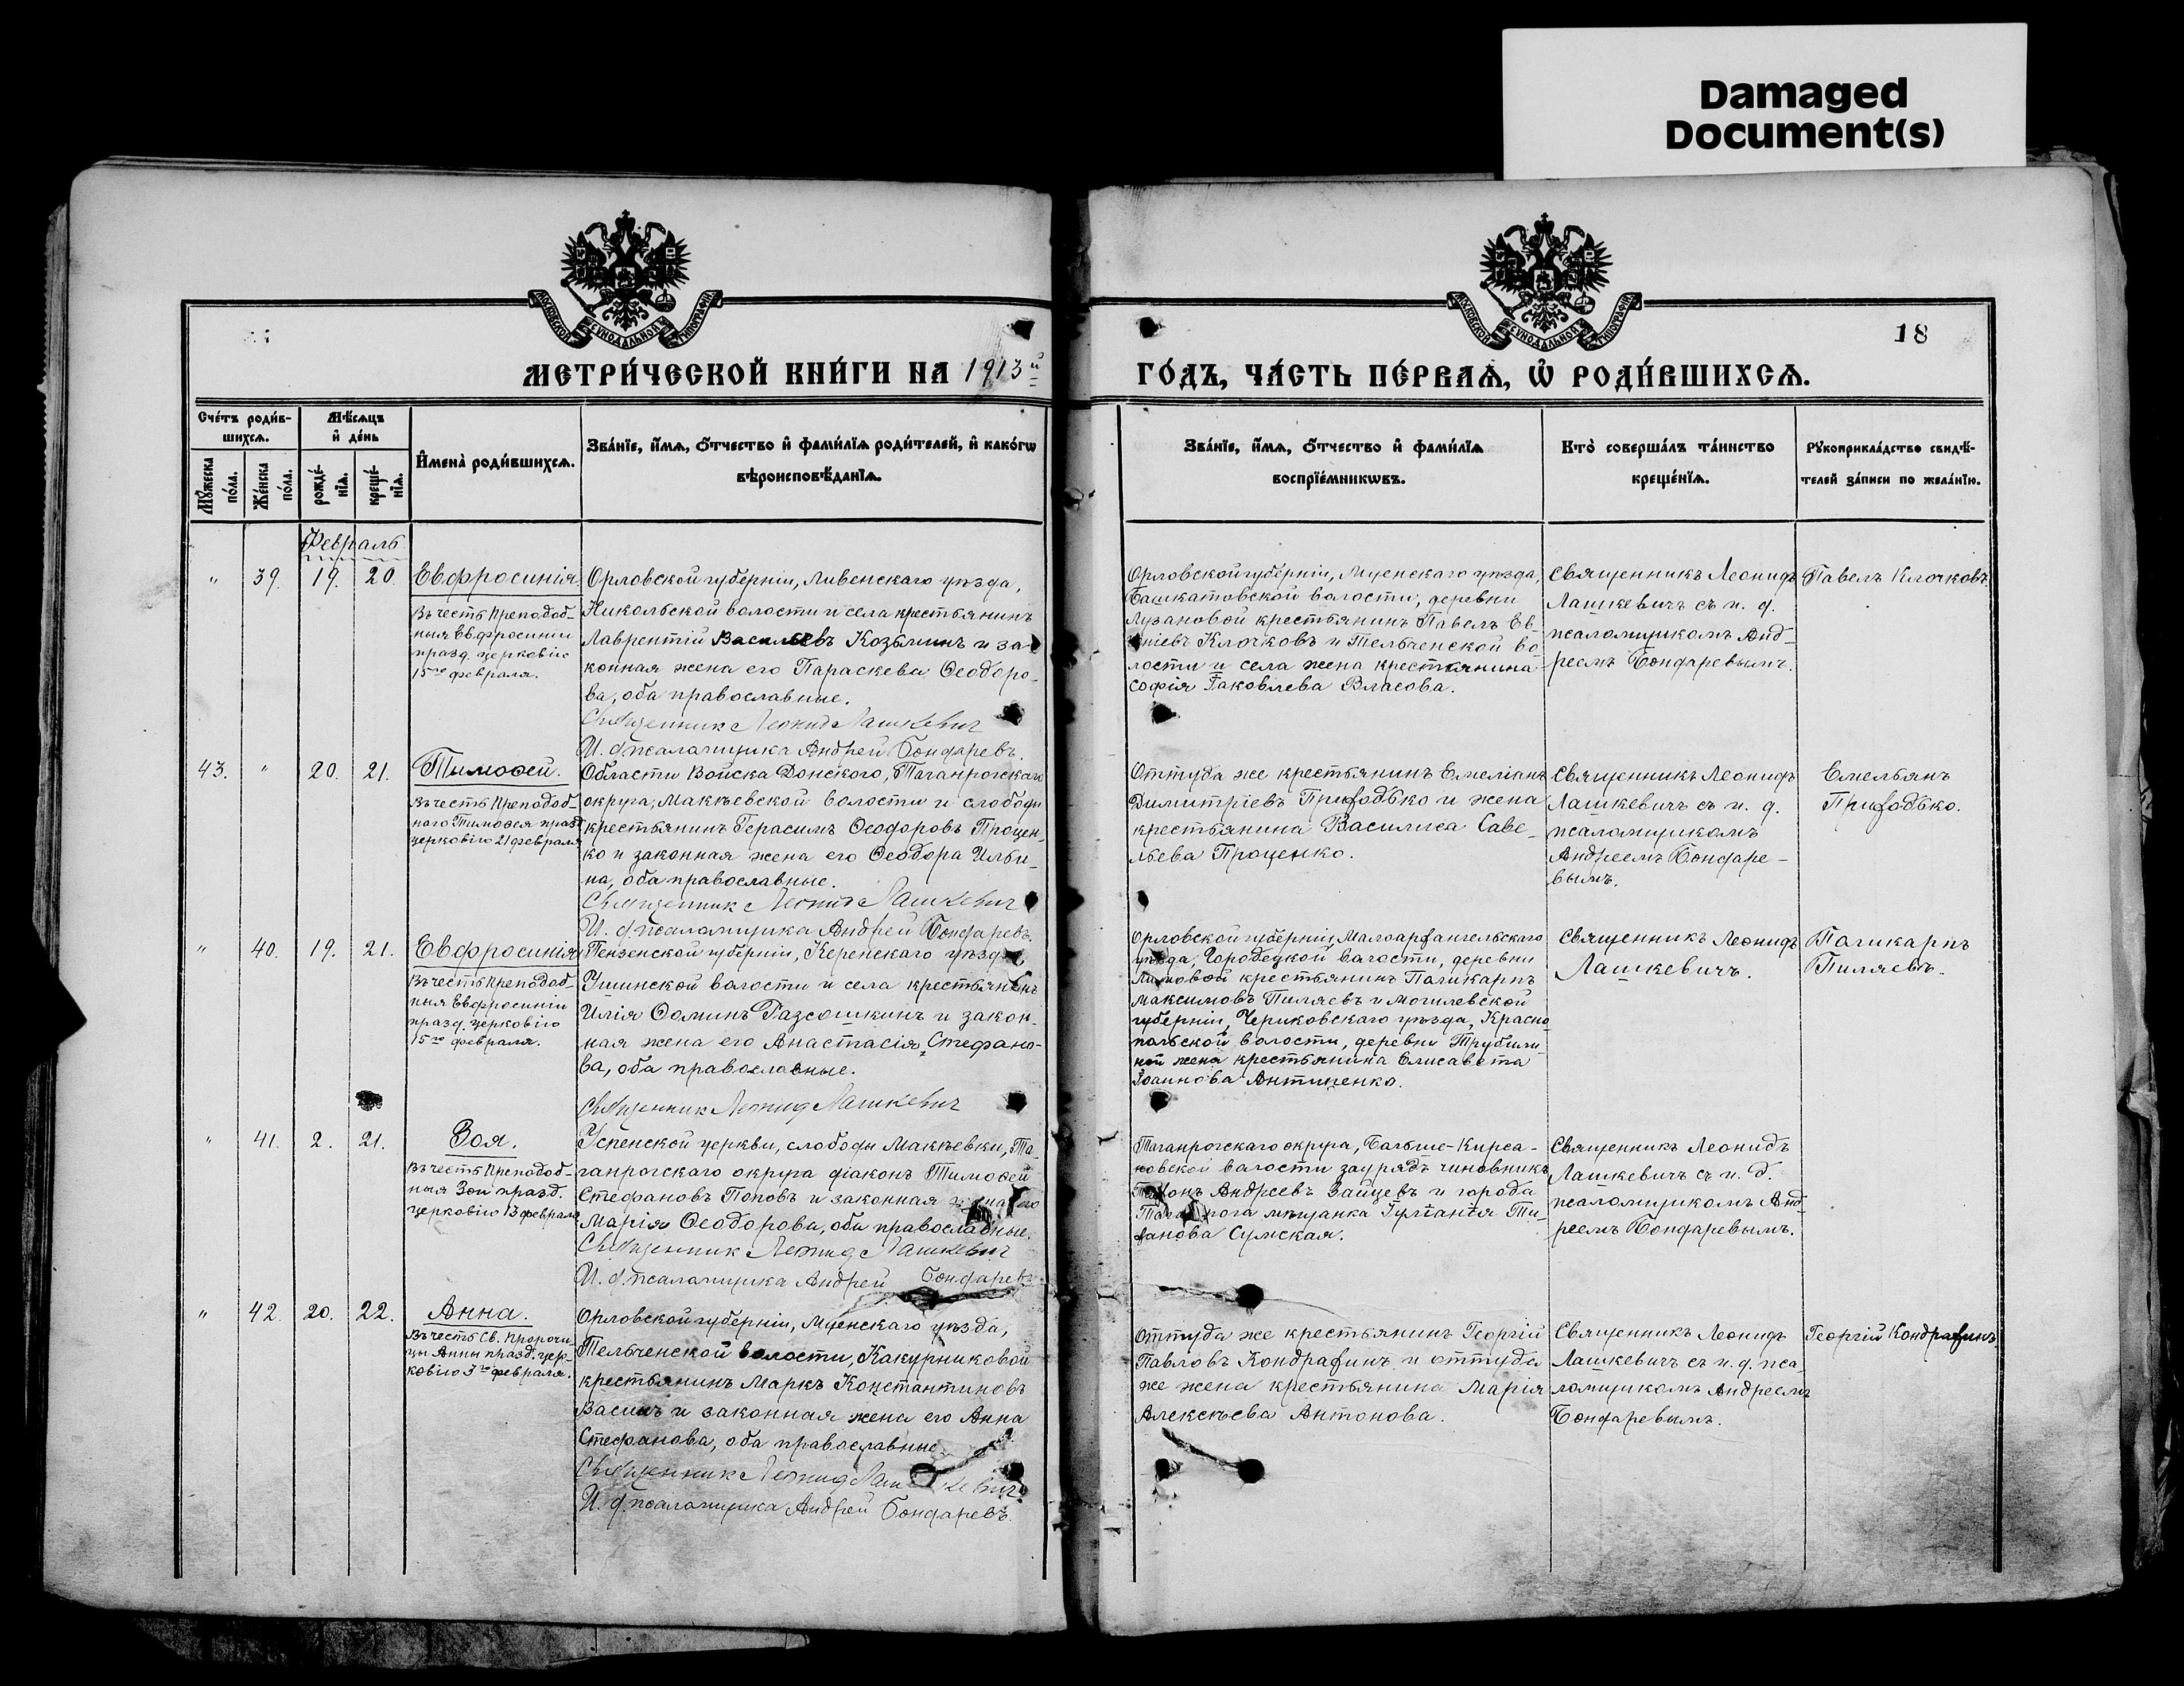 Damaged
Document(s)
МОСКОВСКОЙ СУНОДАЛЬНОЙ ТИПОГРАФІИ
МОСКОВСКОЙ СУНОДАЛЬНОЙ ТИПОГРАФІИ
18
МЕТРИ́ЧЕСКОЙ КНИ́ГИ НА 1913й
ГО́ДЪ, ЧА́СТЬ ПЕ́РВАѦ, Ѡ҆ РОДИ́ВШИХСѦ.
Сче́тъ роди́в-
шихсѧ.
Мѣ́сѧцъ
и҆ де́нь
Мꙋ́жеска
по́ла.
Же́нска
по́ла.
рожде́-
нїѧ.
креще́-
нїѧ.
И҆мена̀ роди́вшихсѧ.
Зва́нїе, и҆́мѧ, ѻ҆́тчество и҆ фами́лїѧ роди́телей, и҆ како́гѡ
вѣроисповѣ́данїѧ.
Зва́нїе, и҆́мѧ, ѻ҆́тчество и҆ фами́лїѧ
воспрїе́мникѡвъ.
Кто̀ соверша́лъ та́инство
креще́нїѧ.
Рꙋкоприкла́дство свидѣ́-
телей за́писи по жела́нїю.
Февраль
" 39. 19. 20.
Евфросинія.
Въ честь Преподоб-
ныя Евфросиніи
празд. церковію
15го февраля.
Орловской губерніи, Ливенскаго уѣзда,
Никольской волости и села крестьянинъ
Лаврентій Васильевъ Козьминъ и за-
конная жена его Параскева Ѳеодоро-
ва, оба православные.
Священник Леонид Лашкевич
И. д. псаломщика Андрей Бондаревъ.
Орловской губерніи, Мценскаго уѣзда,
Башкатовской волости, деревни
Лузановой крестьянинъ Павелъ Ев-
Клочковъ и Тельченской во-
лости и села жена крестьянина
Софія Іаковлева Власова.
Священникъ Леонидъ
Лашкевичъ съ и. д.
псаломщикомъ Анд-
реемъ Бондаревымъ.
Павелъ Клочковъ.
43. " 20. 21.
Тимоѳей.
Въ честь Преподоб-
наго Тимоѳея празд.
церковію 21 февраля
Области Войска Донского, Таганрогскаго
округа, Макѣевской волости и слободы
крестьянинъ Герасимъ Ѳеодоровъ Процен-
ко и законная жена его Ѳеодора Ильи-
на, оба православные.
Священник Леонид Лашкевич
И. д. псаломщика Андрей Бондаревъ.
Оттуда же крестьянинъ Емеліанъ
Димитріевъ Приходько и жена
крестьянина Василиса Саве-
льева Проценко.
Священникъ Леонидъ
Лашкевичъ съ и. д.
псаломщикомъ
Андреемъ Бондаре-
вымъ.
Емельянъ
Приходько.
" 40. 19. 21.
Евфросинія
Въ честь Преподоб-
ныя Евфросиніи
празд. церковію
15го февраля.
Пензенской губерніи, Керенскаго уѣзда,
Ушинской волости и села крестьянинъ
Илія Ѳоминъ Разсошкинъ и закон-
ная жена его Анастасія Стефано-
ва, оба православные.
Священник Леонид Лашкевич
Орловской губерніи, Малоархангельскаго
уѣзда, Городецкой волости, деревни
крестьянинъ Поликарпъ
Максимовъ Пиляевъ и Могилевской
губерніи, Чериковскаго уѣзда, Красно-
польской волости, деревни
жена крестьянина Елисавета
Іоаннова Антипенко.
Священникъ Леонидъ
Лашкевичъ.
Поликарпъ
Пиляевъ.
" 41. 2. 21.
Зоя.
Въ честь Преподоб-
ныя Зои празд.
церковію 13 февраля
Успенской церкви, слободы Макѣевки, Та-
ганрогскаго округа діаконъ Тимоѳей
Стефановъ Поповъ и законная жена его
Марія Ѳеодорова, оба православные.
Священник Леонид Лашкевич
И. д. псаломщика Андрей Бондаревъ
Таганрогскаго округа, Больше-Кирса-
новской волости зауряд чиновникъ
Андреевъ Зайцевъ и города
мѣщанка Іуліанія Ти-
ханова Сумская.
Священникъ Леонидъ
Лашкевичъ съ и. д.
псаломщикомъ Анд-
реемъ Бондаревымъ.
" 42. 20. 22.
Анна.
Въ честь Св. Пророчи-
цы Анны празд. цер-
ковію 3го февраля.
Орловской губерніи, Мценскаго уѣзда,
Тельченской волости, Какурниковой
крестьянинъ Маркъ Константиновъ
Васинъ и законная жена его Анна
Стефанова, оба православные
Священник Леонид Лашкевич
И. д. псаломщика Андрей Бондаревъ.
Оттуда же крестьянинъ Георгій
Павловъ Кондрахинъ и оттуда
же жена крестьянина Марія
Алексѣева Антонова.
Священникъ Леонидъ
Лашкевичъ съ и. д. пса-
ломщикомъ Андреемъ
Бондаревымъ.
Георгій Кондрахинъ